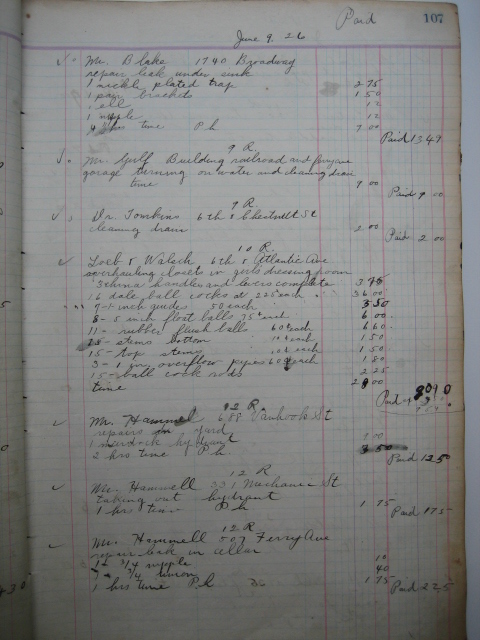 Paid 107
June 9. 26
Mr. Blake 1740 Broadway
repair leak under sink
1 nickle plated trap 2 75
1 pair brackets 1 50
1 ell 12
1 nipple 12
4 1/2 hrs time Ph 9 00
Paid 13 49
9 R.
Mr. Gulf Building railroad and
garage turning on water and cleaning drain
time 9 00
Paid 9 00
9 R.
Dr. Tomkins 6th & Chestnutt St
cleaning drain 2 00
Paid 2 00
10 R.
Loeb & Walsch 6th & Atlantic Ave
overhauling closets in girls dressing room
3 china handles and levers complete 3 75
16 dale ball cocks at 225 each 36 00
inch guides 50 each 3 50
8 - 5 inch float balls 75¢ each 6 00
11 - rubber flush balls 60¢ each 6 60
15 - stems bottom 10¢ each 1 50
15 - top stems 10¢ each 1 50
3 - 1 overflow pipes 60¢ each 1 80
15 - ball cock rods 2 25
time
Paid
12 R
Mr. Hammell 688 Vanhook St
repairs in yard
1 murdock hydrant
2 hrs time Ph 3 50
Paid 12 50
12 R
Mr. Hammell 331 Mechanic St
taking out hydrant
1 hrs time Ph 1 75
Paid 1 75
12 R
Mr. Hammell Ferry Ave
repair leak in cellar
3/4 nipple 10
3/4 union 40
1 hrs time Ph 1 75
Paid 2 25